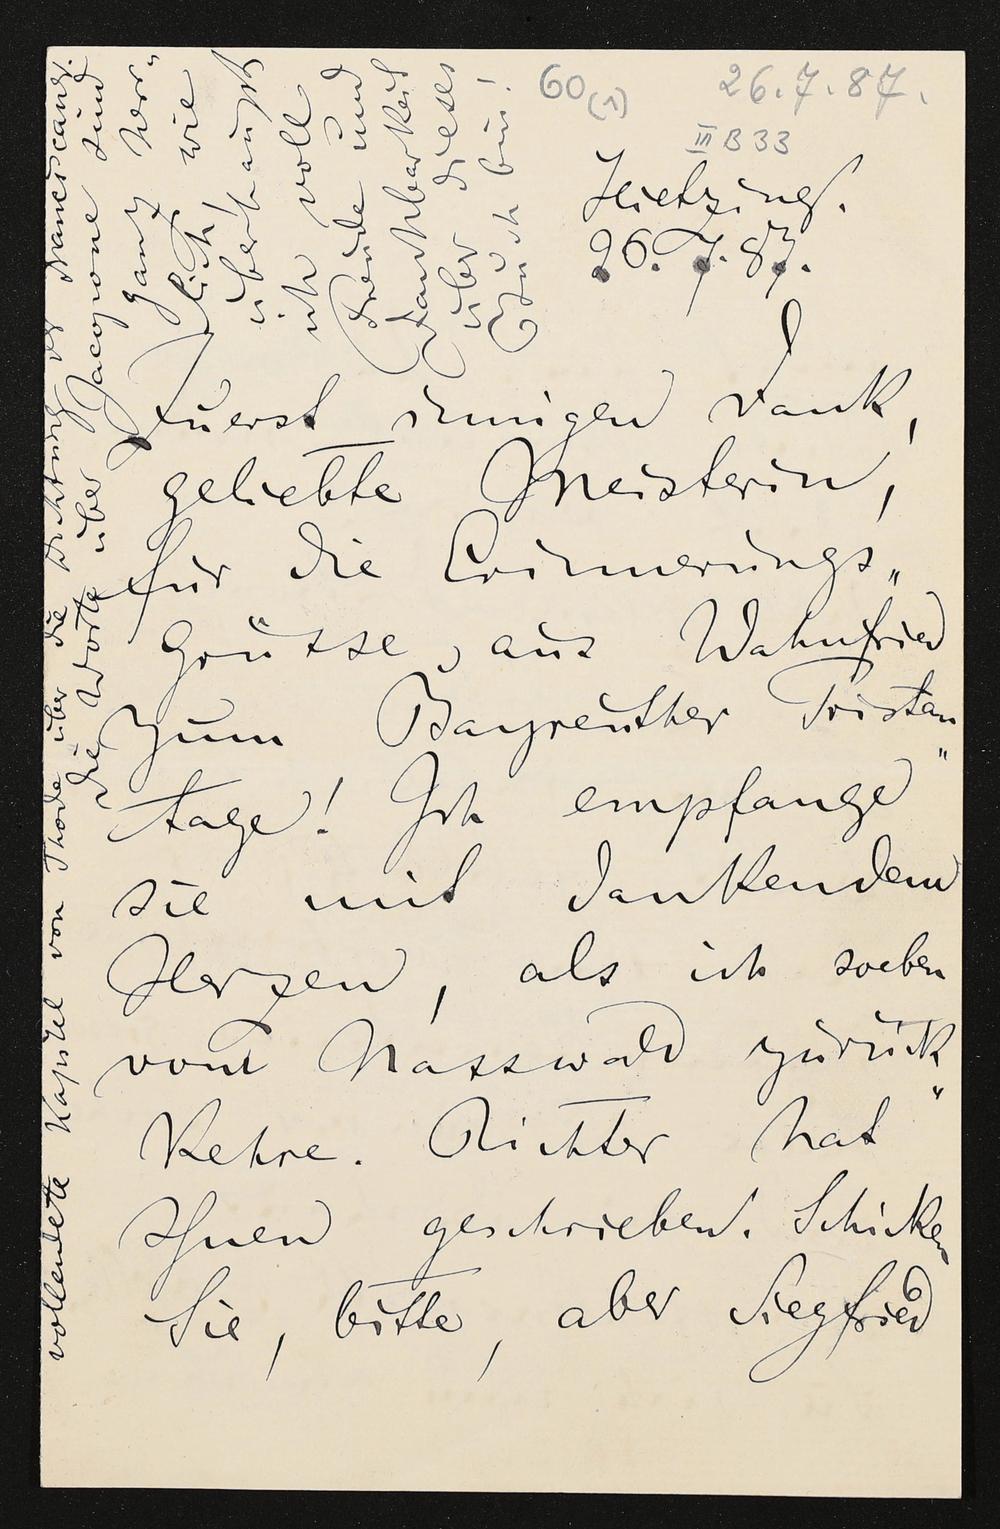 60 (1)
26.7.87.
III B 33
Hietzing.
26. 7. 87.
Zuerst innigen Dank,
geliebte Meisterin,
für die Erinnerungs„
grüsse, aus Wahnfried
zum Bayreuther Tristan„
tage! Ich empfange
sie mit dankendem
Herzen, als ich soeben
vom Nasswald zurück„
kehre. Richter hat
Ihnen geschrieben. Schicken
Sie, bitte, aber Siegfried
vollendete Kapitel von Thode über die Dichtung der Franciscaner.
Die Worte über Jacopone sind
ganz herr„
lich, wie
überhaupt
ich voll
Freude und
Dankbarkeit
über dieses
Buch bin!